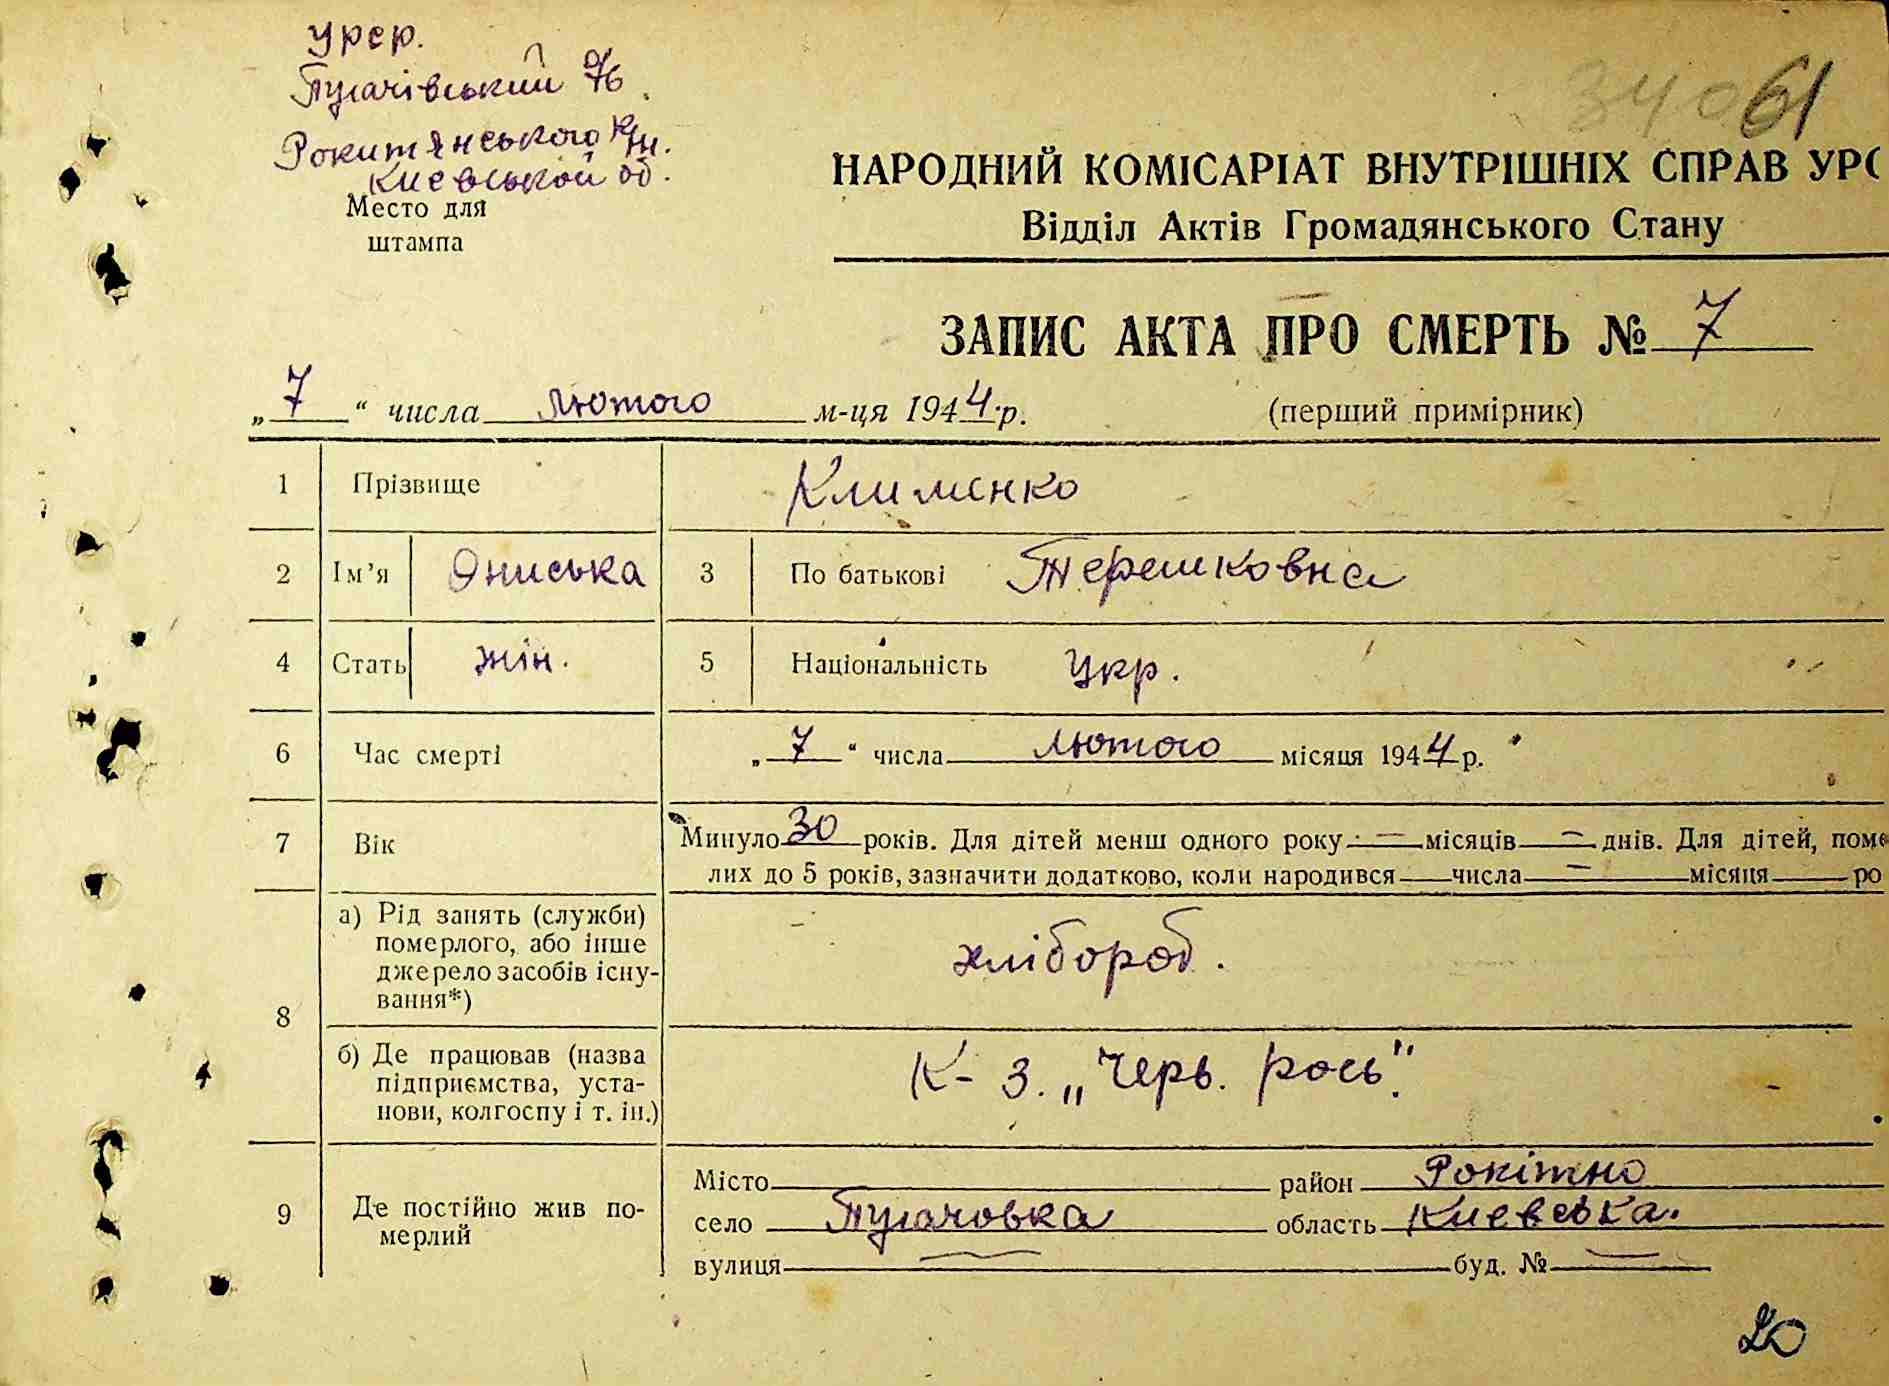 урср.
Пугачівський
Рокитянського р/н.
Киевськой об.
Место для
штампа
61
НАРОДНИЙ КОМІСАРІАТ ВНУТРІШНІХ СПРАВ УРС
Відділ Актів Громадянського Стану
ЗАПИС АКТА ПРО СМЕРТЬ № 7
„7“ числа лютого м-ця 1944 р. (перший примірник)
1 Прізвище Клименко
2 Ім’я Ониська 3 По батькові Терешковна
4 Стать жін. 5 Національність Укр.
6 Час смерті „7“ числа лютого місяця 1944 р.
7 Вік Минуло 30 років. Для дітей менш одного року — місяців — днів. Для дітей, поме
лих до 5 років, зазначити додатково, коли народився — числа — місяця ро
8 а) Рід занять (служби)
померлого, або інше
джерело засобів існу-
вання*)
хлібороб.
б) Де працював (назва
підприємства, уста-
нови, колгоспу і т. ін.)
К-з. „Черв. рось".
9 Де постійно жив по-
мерлий
Місто район Рокітно
село Пугачовка область Киевська.
вулиця — буд. № —
20